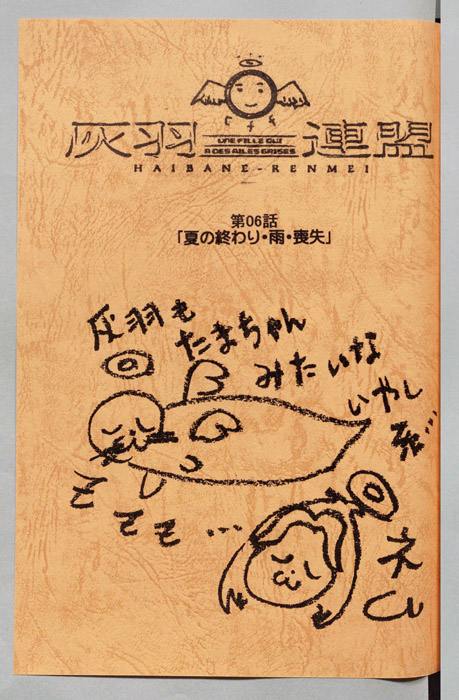 灰羽 連盟
UNE FILLE QUI
A DES AILES GRISES
HAIBANE-RENMEI
第06話
「夏の終わり・雨・喪失」
灰羽も
たまちゃん
みたいな
いやし
系…
Z Z Z …